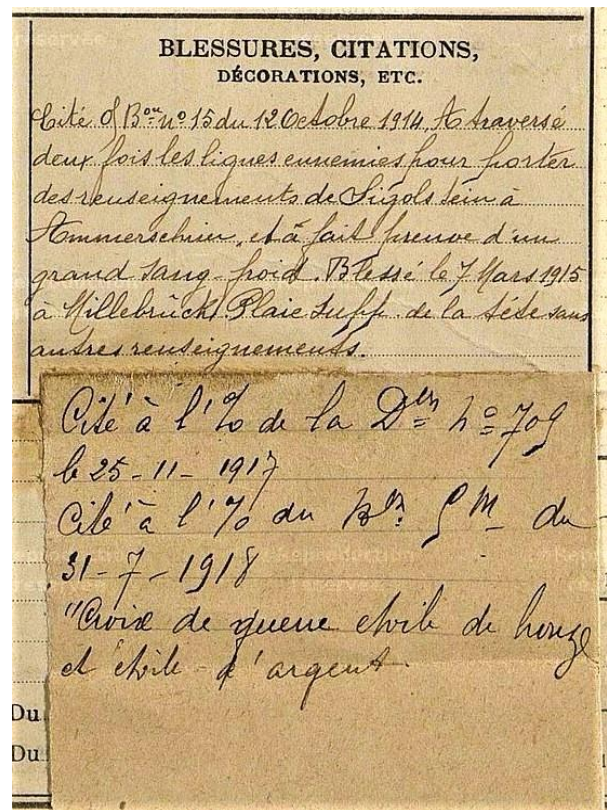 BLESSURES, CITATIONS,
DÉCORATIONS, ETC.
Cité O/ Bon nº 15 du 12 Octobre 1914, A traversé
deux fois les lignes ennemies pour porter
des renseignements de Sigolstein à
Ammerschuir, et à fait preuve d'un
grand sang-froid. Blessé le 7 Mars 1915
à Hillebrück Plaie supp. de la tête sans
autres renseignements.
Cité à l'% de la Don nº 709
le 25-11-1917
Cité à l'% du du
31-7-1918
"Croix de guerre etoile de bronze
et étoile d'argent
Du
Du